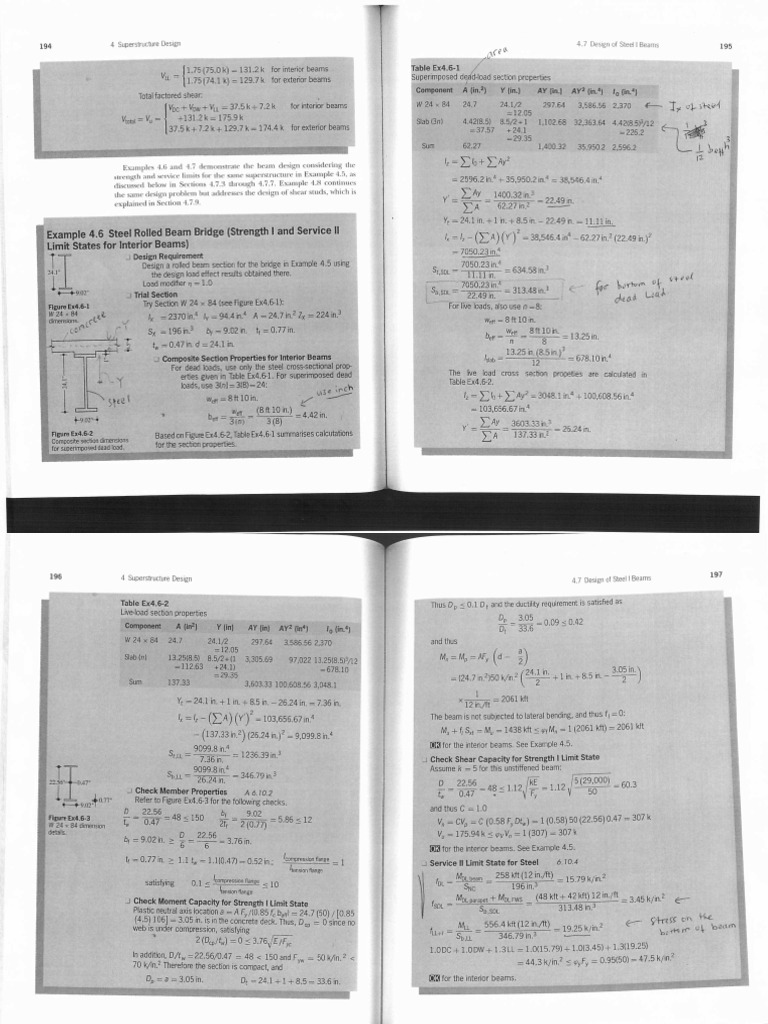 194
4 Superstructure Design
V_LL = { 1.75 (75.0 k) = 131.2 k for interior beams
1.75 (74.1 k) = 129.7 k for exterior beams
Total factored shear:
V_total = V_u = { V_DC + V_DW + V_LL = 37.5 k + 7.2 k for interior beams
+131.2 k = 175.9 k
37.5 k + 7.2 k + 129.7 k = 174.4 k for exterior beams
Examples 4.6 and 4.7 demonstrate the beam design considering the
strength and service limits for the same superstructure in Example 4.5, as
discussed below in Sections 4.7.3 through 4.7.7. Example 4.8 continues
the same design problem but addresses the design of shear studs, which is
explained in Section 4.7.9.
Example 4.6 Steel Rolled Beam Bridge (Strength I and Service II
Limit States for Interior Beams)
❑ Design Requirement
Design a rolled beam section for the bridge in Example 4.5 using
the design load effect results obtained there.
Load modifier η = 1.0
❑ Trial Section
Try Section W 24 × 84 (see Figure Ex4.6-1):
I_x = 2370 in.⁴ I_y = 94.4 in.⁴ A = 24.7 in.² Z_x = 224 in.³
S_x = 196 in.³ b_f = 9.02 in. t_f = 0.77 in.
t_w = 0.47 in. d = 24.1 in.
24.1"
9.02"
Figure Ex4.6-1
W 24 × 84
dimensions.
concrete
Y
steel
9.02"
❑ Composite Section Properties for Interior Beams
For dead loads, use only the steel cross-sectional prop-
erties given in Table Ex4.6-1. For superimposed dead
loads, use 3(n) = 3(8) = 24:
w_eff = 8 ft 10 in.
use inch
b_eff = w_eff / 3(n) = (8 ft 10 in.) / 3 (8) = 4.42 in.
Based on Figure Ex4.6-2, Table Ex4.6-1 summarises calculations
for the section properties.
Figure Ex4.6-2
Composite section dimensions
for superimposed dead load.
4.7 Design of Steel I Beams
195
area
Table Ex4.6-1
Superimposed dead-load section properties
Component A (in.²) Y (in.) AY (in.) AY² (in.⁴) I₀ (in.⁴)
W 24 × 84 24.7 24.1/2 297.64 3,586.56 2,370
= 12.05
Slab (3n) 4.42(8.5) 8.5/2 + 1 1,102.68 32,363.64 4.42(8.5)³/12
= 37.57 + 24.1 = 226.2
= 29.35
Sum 62.27 1,400.32 35,950.2 2,596.2
I_x of steel
1/12 bh³
I_z = ∑I₀ + ∑Ay²
= 2596.2 in.⁴ + 35,950.2 in.⁴ = 38,546.4 in.⁴
Y′ = ∑Ay / ∑A = 1400.32 in.³ / 62.27 in.² = 22.49 in.
Y_t = 24.1 in. + 1 in. + 8.5 in. − 22.49 in. = 11.11 in.
I_x = I_z − (∑A)(Y′)² = 38,546.4 in⁴ − 62.27 in.² (22.49 in.)²
= 7050.23 in.⁴
S_t,SDL = 7050.23 in.⁴ / 11.11 in. = 634.58 in.³
S_b,SDL = 7050.23 in.⁴ / 22.49 in. = 313.48 in.³
for bottom of steel
dead load
For live loads, also use n = 8:
w_eff = 8 ft 10 in.
b_eff = w_eff / n = 8 ft 10 in. / 8 = 13.25 in.
I_slab = 13.25 in. (8.5 in.)³ / 12 = 678.10 in.⁴
The live load cross section propeties are calculated in
Table Ex4.6-2.
I_z = ∑I₀ + ∑Ay² = 3048.1 in.⁴ + 100,608.56 in.⁴
= 103,656.67 in.⁴
Y′ = ∑Ay / ∑A = 3603.33 in.³ / 137.33 in.² = 26.24 in.
196
4 Superstructure Design
Table Ex4.6-2
Live-load section properties
Component A (in²) Y (in) AY (in) AY² (in⁴) I₀ (in.⁴)
W 24 × 84 24.7 24.1/2 297.64 3,586.56 2,370
= 12.05
Slab (n) 13.25(8.5) 8.5/2 + (1 3,305.69 97,022 13.25(8.5)³/12
= 112.63 + 24.1) = 678.10
= 29.35
Sum 137.33 3,603.33 100,608.56 3,048.1
Y_t = 24.1 in. + 1 in. + 8.5 in. − 26.24 in. = 7.36 in.
I_x = I_z − (∑A)(Y′)² = 103,656.67 in.⁴
− (137.33 in.²)(26.24 in.)² = 9,099.8 in.⁴
S_t,LL = 9099.8 in.⁴ / 7.36 in. = 1236.39 in.³
S_b,LL = 9099.8 in.⁴ / 26.24 in. = 346.79 in.³
❑ Check Member Properties A 6.10.2
Refer to Figure Ex4.6-3 for the following checks.
D / t_w = 22.56 / 0.47 = 48 ≤ 150 b_f / 2t_f = 9.02 / 2 (0.77) = 5.86 ≤ 12
b_f = 9.02 in. ≥ D / 6 = 22.56 / 6 = 3.76 in.
t_f = 0.77 in. ≥ 1.1 t_w = 1.1(0.47) = 0.52 in.; I_compression flange / I_tension flange = 1
satisfying 0.1 ≤ I_compression flange / I_tension flange ≤ 10
22.56" 0.47"
0.77"
9.02"
Figure Ex4.6-3
W 24 × 84 dimension
details.
❑ Check Moment Capacity for Strength I Limit State
Plastic neutral axis location a = A F_y /(0.85 f_c b_eff) = 24.7 (50) / [0.85
(4.5) 106] = 3.05 in. is in the concrete deck. Thus, D_cp = 0 since no
web is under compression, satisfying
2 (D_cp/t_w) = 0 ≤ 3.76√E/F_yc
In addition, D/t_w = 22.56/0.47 = 48 < 150 and F_yw = 50 k/in.² <
70 k/in.² Therefore the section is compact, and
D_p = a = 3.05 in. D_t = 24.1 + 1 + 8.5 = 33.6 in.
4.7 Design of Steel I Beams
197
Thus D_p ≤ 0.1 D_t and the ductility requirement is satisfied as
D_p / D_t = 3.05 / 33.6 = 0.09 ≤ 0.42
and thus
M_n = M_p = AF_y (d − a/2)
= (24.7 in.²)50 k/in.² (24.1 in. / 2 + 1 in. + 8.5 in. − 3.05 in. / 2)
× 1 / 12 in./ft = 2061 kft
The beam is not subjected to lateral bending, and thus f_l = 0:
M_u + f_l S_xt = M_u = 1438 kft ≤ φ_f M_n = 1 (2061 kft) = 2061 kft
OK for the interior beams. See Example 4.5.
❑ Check Shear Capacity for Strength I Limit State
Assume k = 5 for this unstiffened beam:
D / t_w = 22.56 / 0.47 = 48 ≤ 1.12 √kE / F_y = 1.12 √5 (29,000) / 50 = 60.3
and thus C = 1.0
V_n = CV_p = C (0.58 F_y Dt_w) = 1 (0.58) 50 (22.56) 0.47 = 307 k
V_u = 175.94 k ≤ φ_v V_n = 1 (307) = 307 k
OK for the interior beams. See Example 4.5.
❑ Service II Limit State for Steel 6.10.4
f_DL = M_DL,beam / S_NC = 258 kft (12 in./ft) / 196 in.³ = 15.79 k/in.²
f_SDL = M_DL,parapet + M_DL,FWS / S_b,SDL = (48 kft + 42 kft) 12 in./ft / 313.48 in.³ = 3.45 k/in.²
f_LL+I = M_LL / S_b,LL = 556.4 kft (12 in./ft) / 346.79 in.³ = 19.25 k/in.²
stress on the
bottom of beam
1.0DC + 1.0DW + 1.3LL = 1.0(15.79) + 1.0(3.45) + 1.3(19.25)
= 44.3 k/in.² ≤ φ_f F_y = 0.95(50) = 47.5 k/in.²
OK for the interior beams.